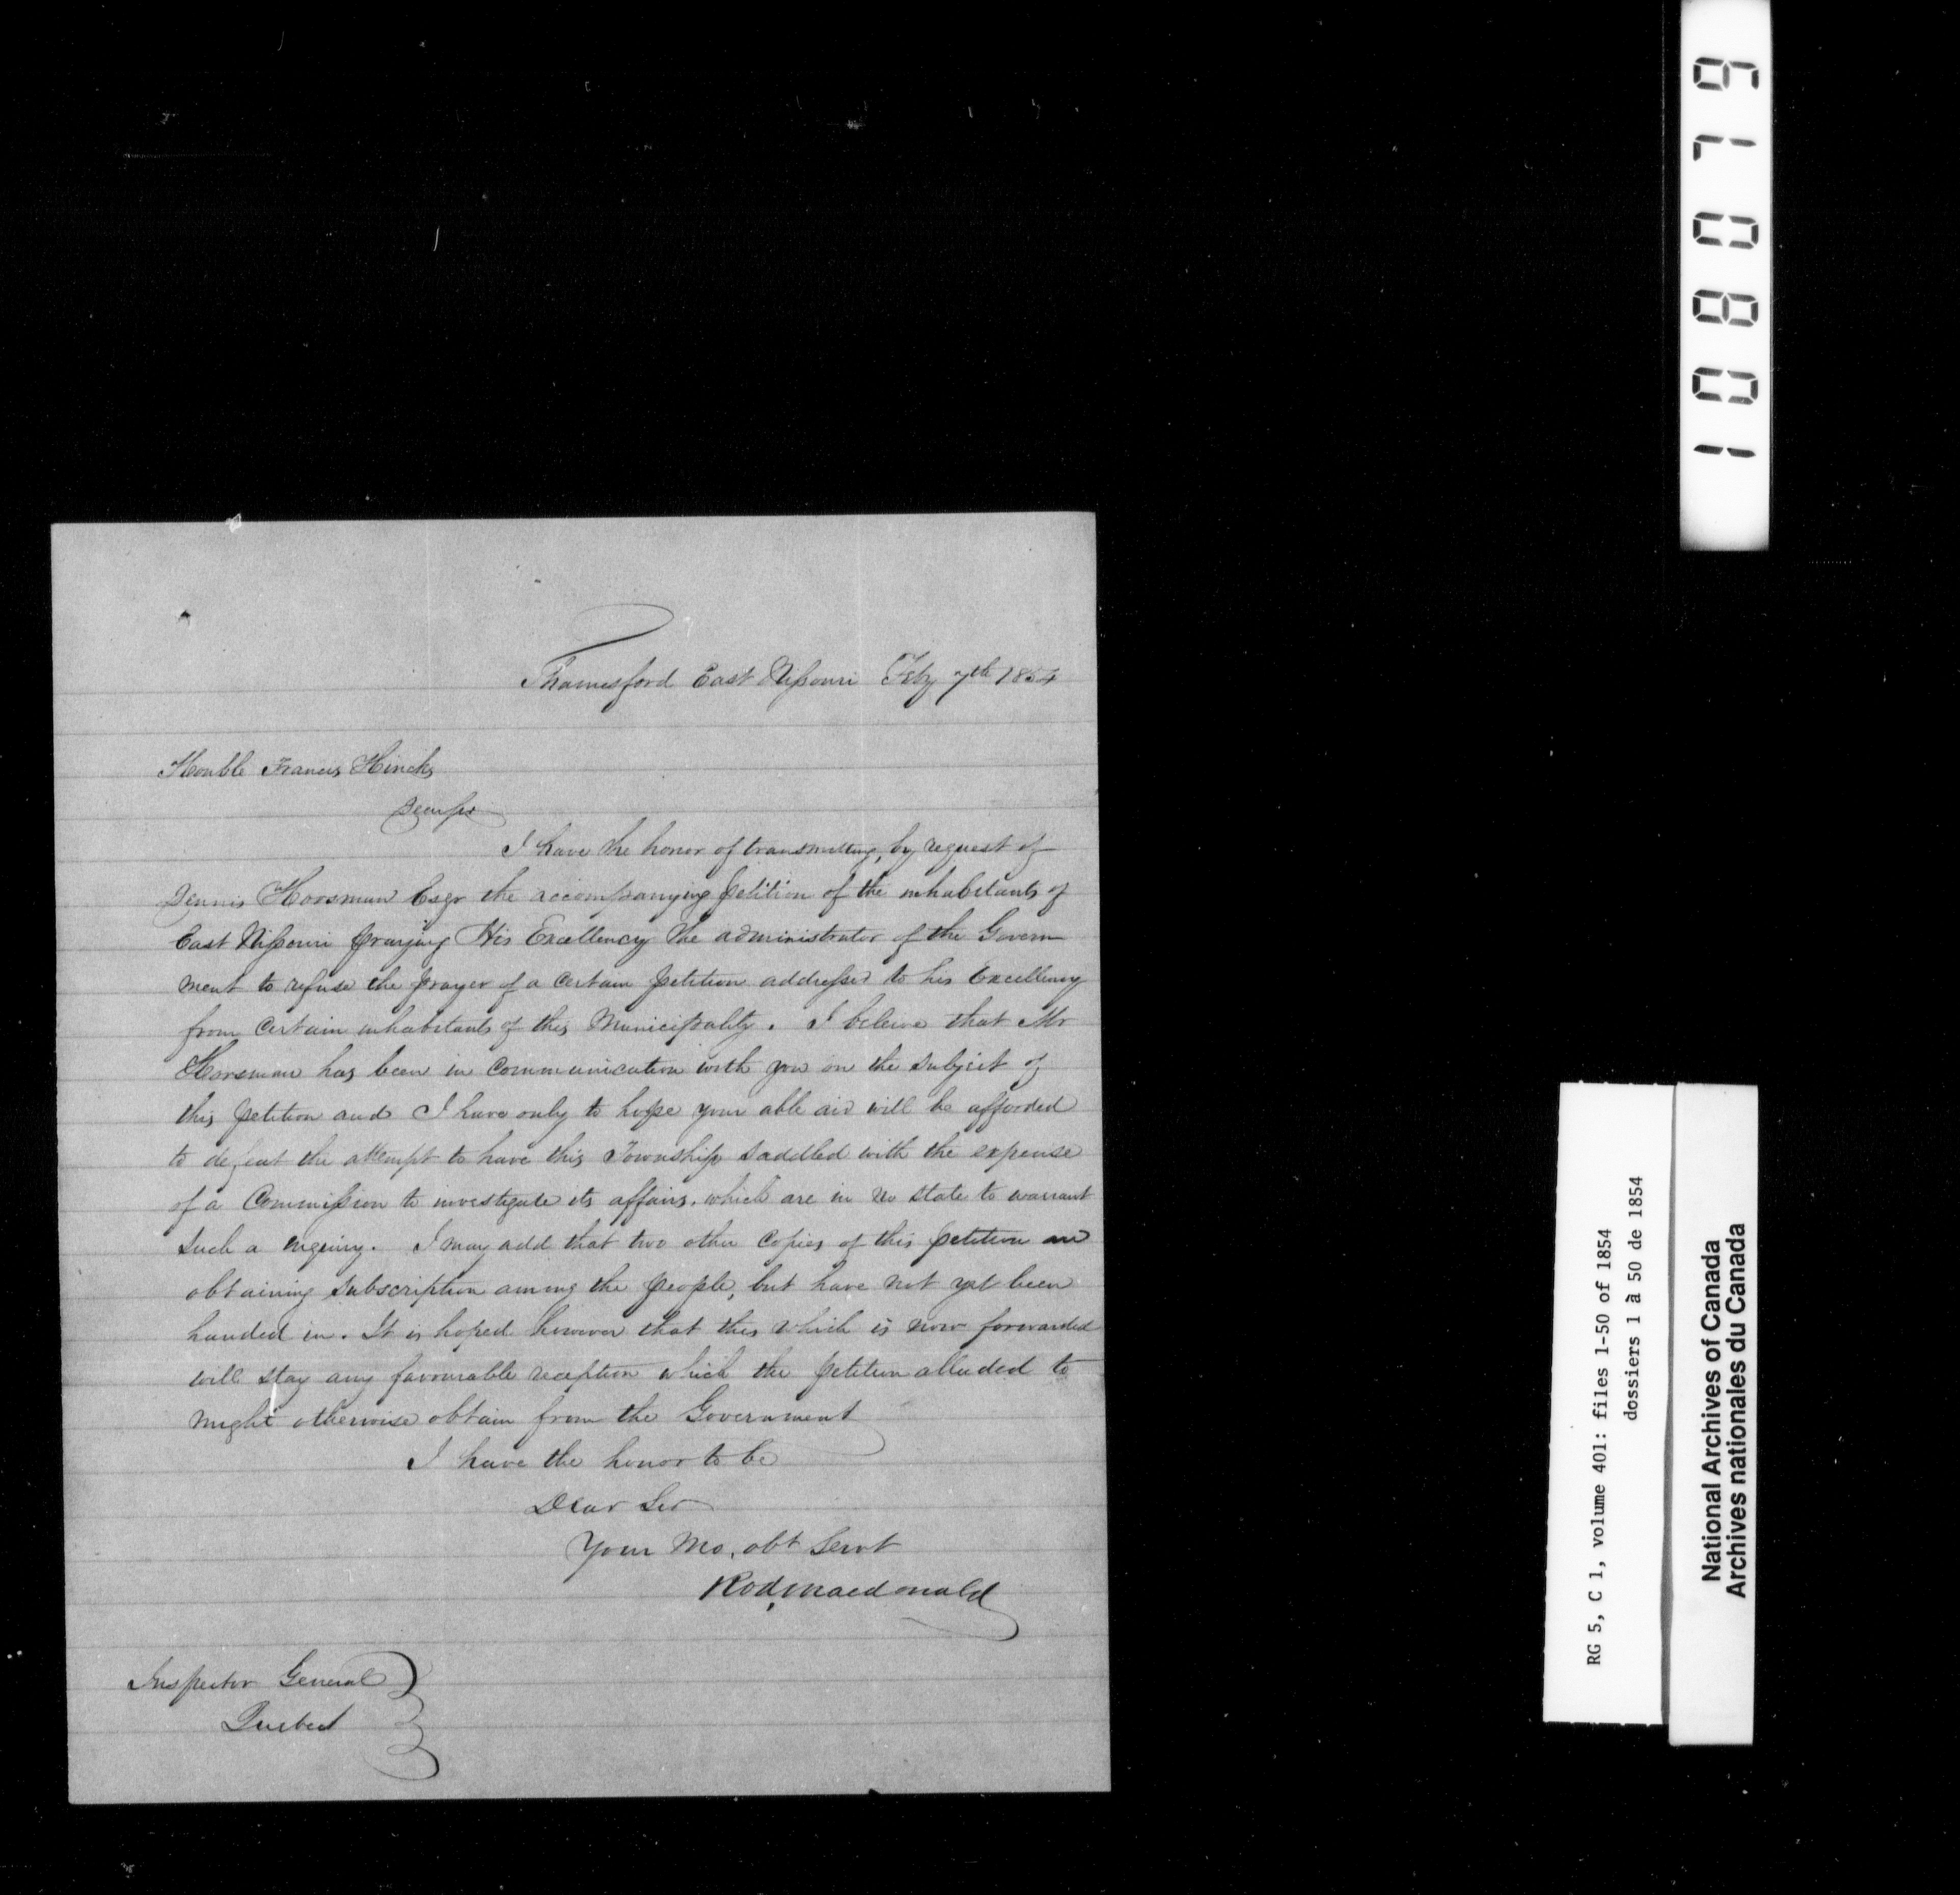 Thamesford East Nissouri Feby 7th 1854
Honble Francis Hincks
Dear Sir
I have the honor of transmitting, by request of
Dennis Horsman Esqr the accompanying petition of the inhabitants of
East Nissouri praying His Excellency the administrator of the Govern
ment to refuse the prayer of a certain petition addressed to his Excellency
from certain inhabitants of this Municipality. I believe that Mr
Horsman has been in communication with you on the subject of
this petition and I have only to hope your able aid will be afforded
to defeat the attempt to have this Township saddled with the expense
of a Commission to investigate its affairs, which are in no state to warrant
such a enquiry. I may add that two other copies of this petition are
obtaining subscription among the people, but have not yet been
handed in. It is hoped however that this which is now forwarded
will stay any favourable reception which the petition alluded to
might otherwise obtain from the Government
I have the honor to be
Dear Sir
Your Mo. obt Servt
Rod, Macdonald
Inspector General
Quebec
108079
RG 5, C 1, volume 401: files 1-50 of 1854
dossiers 1 à 50 de 1854
National Archives of Canada
Archives nationales du Canada